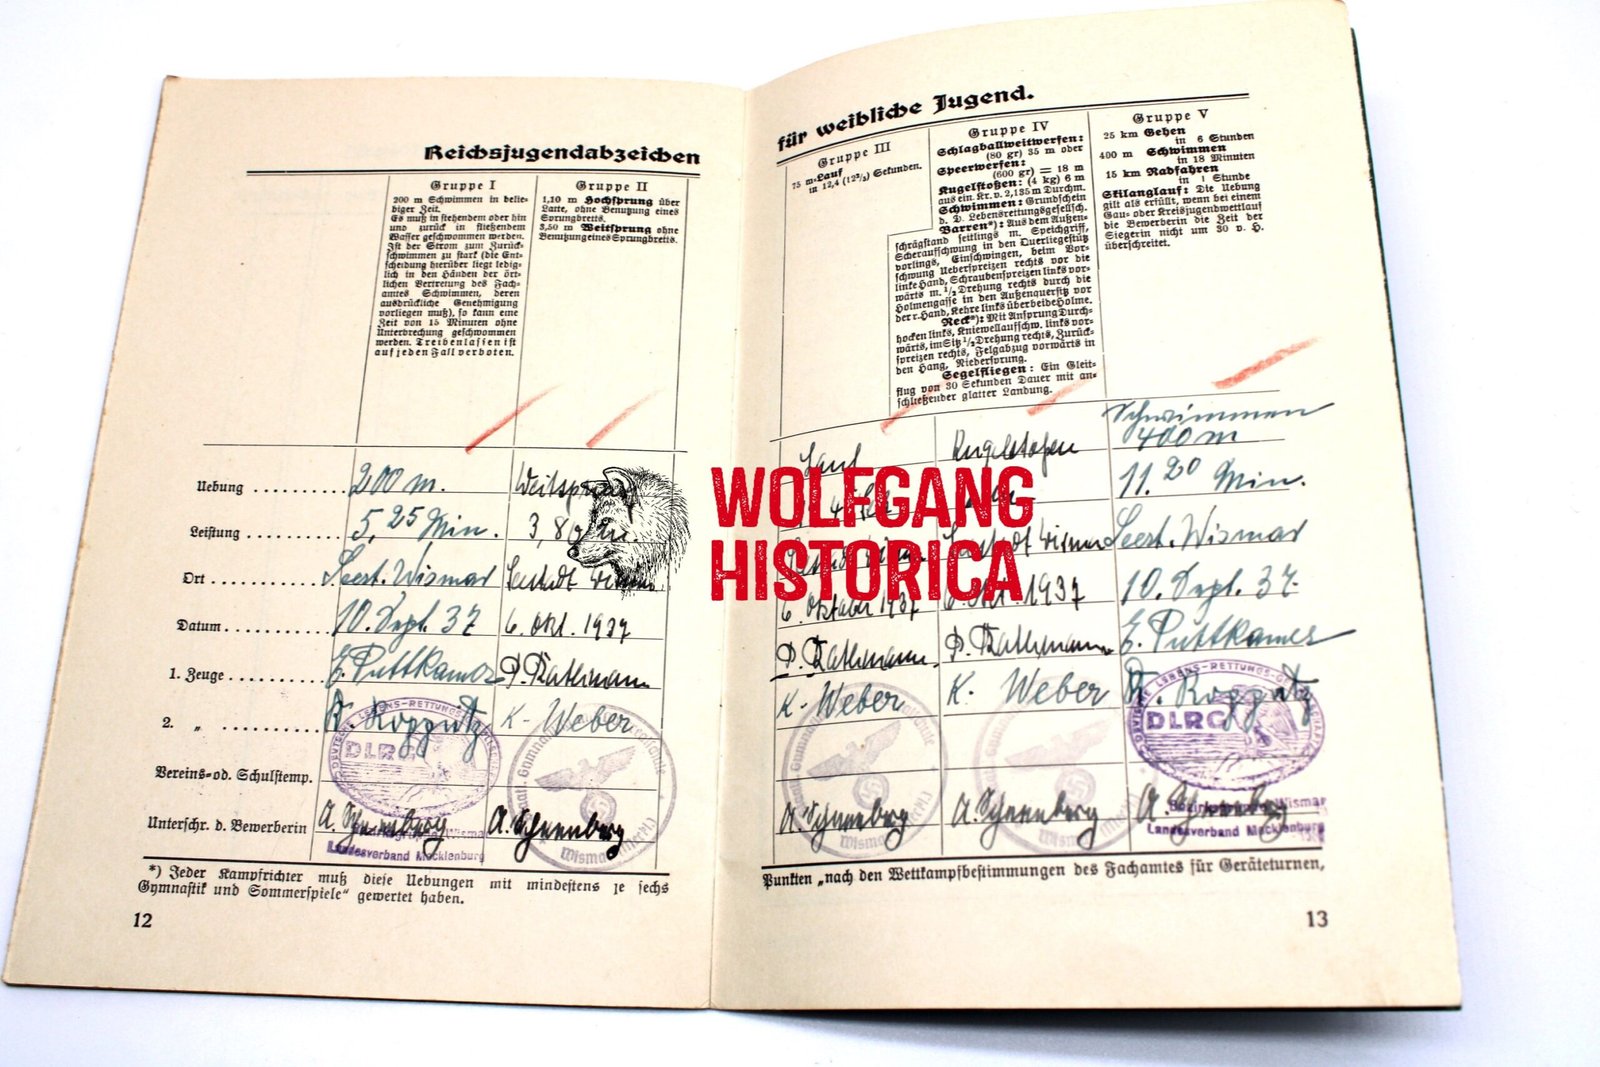 Reichsjugendabzeichen
Gruppe I
200 m Schwimmen in belie-
biger Zeit.
Es muß in stehendem oder hin
und zurück in fließendem
Wasser geschwommen werden.
Ist der Strom zum Zurück-
schwimmen zu stark (die Ent-
scheidung hierüber liegt ledig-
lich in den Händen der ört-
lichen Vertretung des Fach-
amtes Schwimmen, deren
ausdrückliche Genehmigung
vorliegen muß), so kann eine
Zeit von 15 Minuten ohne
Unterbrechung geschwommen
werden. Treibenlassen ist
auf jeden Fall verboten.
Gruppe II
1,10 m Hochsprung über
Latte, ohne Benutzung eines
Sprungbretts.
3,50 m Weitsprung ohne
Benutzung eines Sprungbretts.
Uebung 200 m. Weitsprung
Leistung 5,25 Min. 3,80 m.
Ort Seest. Wismar Seestadt Wismar
Datum 10. Sept. 37 6. Okt. 1937
1. Zeuge E. Puttkamer P. Rathmann
2. „ K. Weber
Vereins- od. Schulstemp.
Unterschr. d. Bewerberin A. Schneeberg A. Schneeberg
DEUTSCHE LEBENS-RETTUNGS-GESELLSCHAFT
DLRG
Wismar
Landesverband Mecklenburg
*) Jeder Kampfrichter muß diese Uebungen mit mindestens je sechs
Gymnastik und Sommerspiele“ gewertet haben.
12
für weibliche Jugend.
Gruppe III
75 m-Lauf
in 12,4 (12²/₅) Sekunden.
Gruppe IV
Schlagballweitwerfen:
(80 gr) 35 m oder
Speerwerfen:
(600 gr) = 18 m
Kugelstoßen: (4 kg) 6 m
aus ein. Kr. v. 2,135 m Durchm.
Schwimmen: Grundschein
d. D. Lebensrettungsgesellsch.
Barren*): Aus dem Außen-
schrägstand seitlings m. Speichgriff,
Scheraufschwung in den Querliegestütz
vorlings, Einschwingen, beim Vor-
schwung Ueberspreizen rechts vor die
linke Hand, Schraubenspreizen links vor-
wärts m. ½ Drehung rechts durch die
Holmengasse in den Außenquersitz vor
der r. Hand, Kehre links über beide Holme.
Reck*): Mit Ansprung Durch-
hocken links, Kniewellaufschw. links vor-
wärts, im Sitz ½ Drehung rechts, Zurück-
spreizen rechts, Felgabzug vorwärts in
den Hang, Niedersprung.
Segelfliegen: Ein Gleit-
flug von 30 Sekunden Dauer mit an-
schließender glatter Landung.
Gruppe V
25 km Gehen
in 6 Stunden
400 m Schwimmen
in 18 Minuten
15 km Radfahren
in 1 Stunde
Skilanglauf: Die Uebung
gilt als erfüllt, wenn bei einem
Gau- oder Kreisjugendwettlauf
die Bewerberin die Zeit der
Siegerin nicht um 30 v. H.
überschreitet.
Lauf Kugelstoßen Schwimmen
400 m
11.20 Min.
Seestadt Wismar Seest. Wismar
6. Oktober 1937 6. Okt. 1937 10. Sept. 37.
P. Rathmann. P. Rathmann E. Puttkamer
K. Weber K. Weber
A. Schneeberg A. Schneeberg A. Schneeberg
DEUTSCHE LEBENS-RETTUNGS-GESELLSCHAFT
DLRG
Wismar
Landesverband Mecklenburg
Punkten „nach den Wettkampfbestimmungen des Fachamtes für Geräteturnen,
13
WOLFGANG
HISTORICA